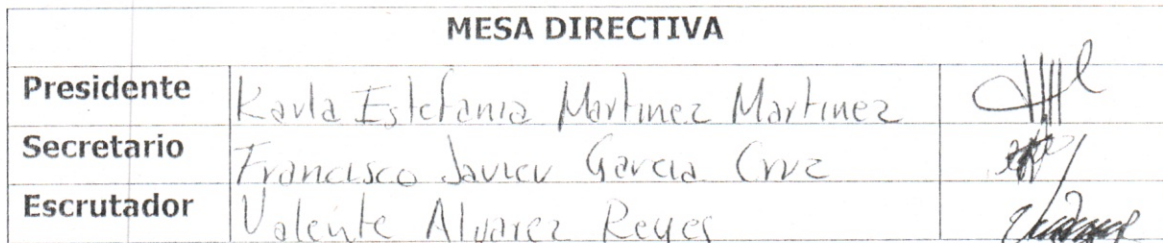 MESA DIRECTIVA
Presidente Karla Estefania Martinez Martinez
Secretario Francisco Javier Garcia Cruz
Escrutador Valente Alvarez Reyes